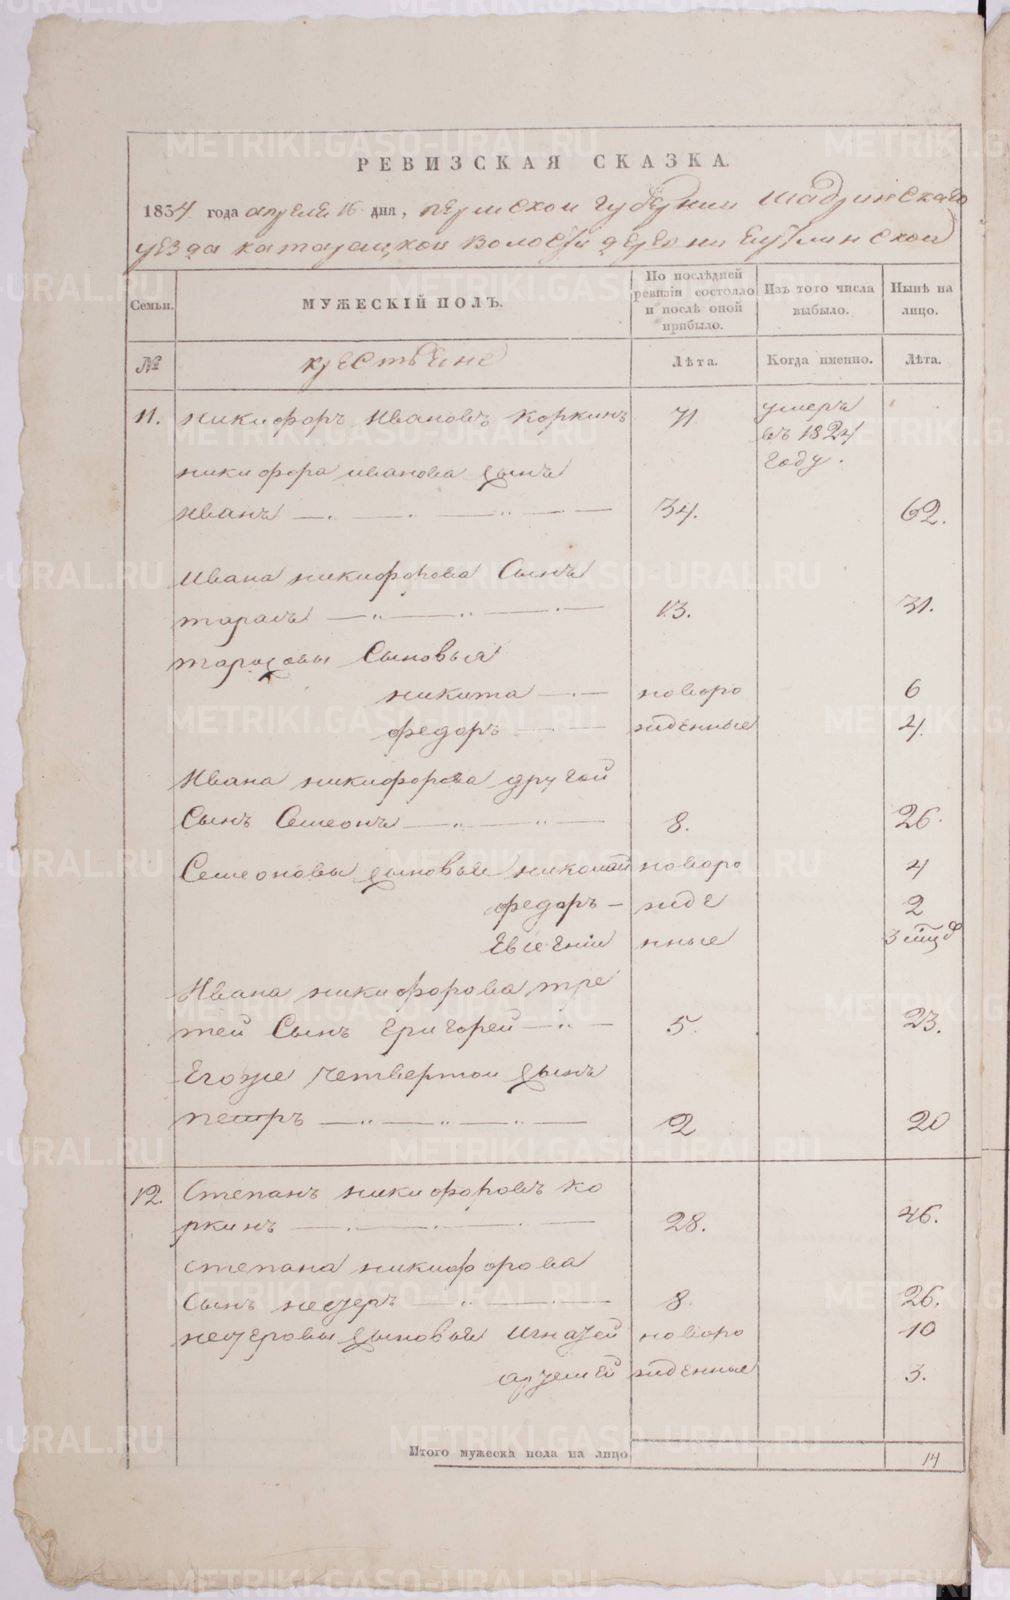 РЕВИЗСКАЯ СКАЗКА.
1834 года апреля 16 дня, пермской губернии Шадринскаго
уезда катайцкой волости деревни
Семьи. МУЖЕСКІЙ ПОЛЪ. По послѣдней ревизіи состояло и послѣ оной прибыло. Изъ того числа выбыло. Нынѣ на лицо.
№ крестьяне Лѣта. Когда именно. Лѣта.
11. никифоръ Ивановъ Коркинъ 71 умеръ
въ 1824
году.
никифора иванова сынъ
иванъ 34. 62.
Ивана никифорова Сынъ
тарасъ 13. 31.
тарасовы Сыновья
никита новоро 6
федоръ жденные 4
Ивана никифорова другой
Сынъ Семеонъ 8. 26.
Семеоновы сыновья николай новоро 4
федоръ – жде 2
Евгений нные 3 мцд
Ивана никифорова тре
тей Сынъ григорей 5. 23.
Егоже четвертой сынъ
петръ 2 20
12. Степанъ никифоровъ ко
ркинъ 28. 46.
степана никифорова
Сынъ нестеръ 8. 26.
нестеровы сыновья игнатей новоро 10
артемей жденные 3.
Итого мужеска пола на лицо 14
METRIKI.GASO-URAL.RU